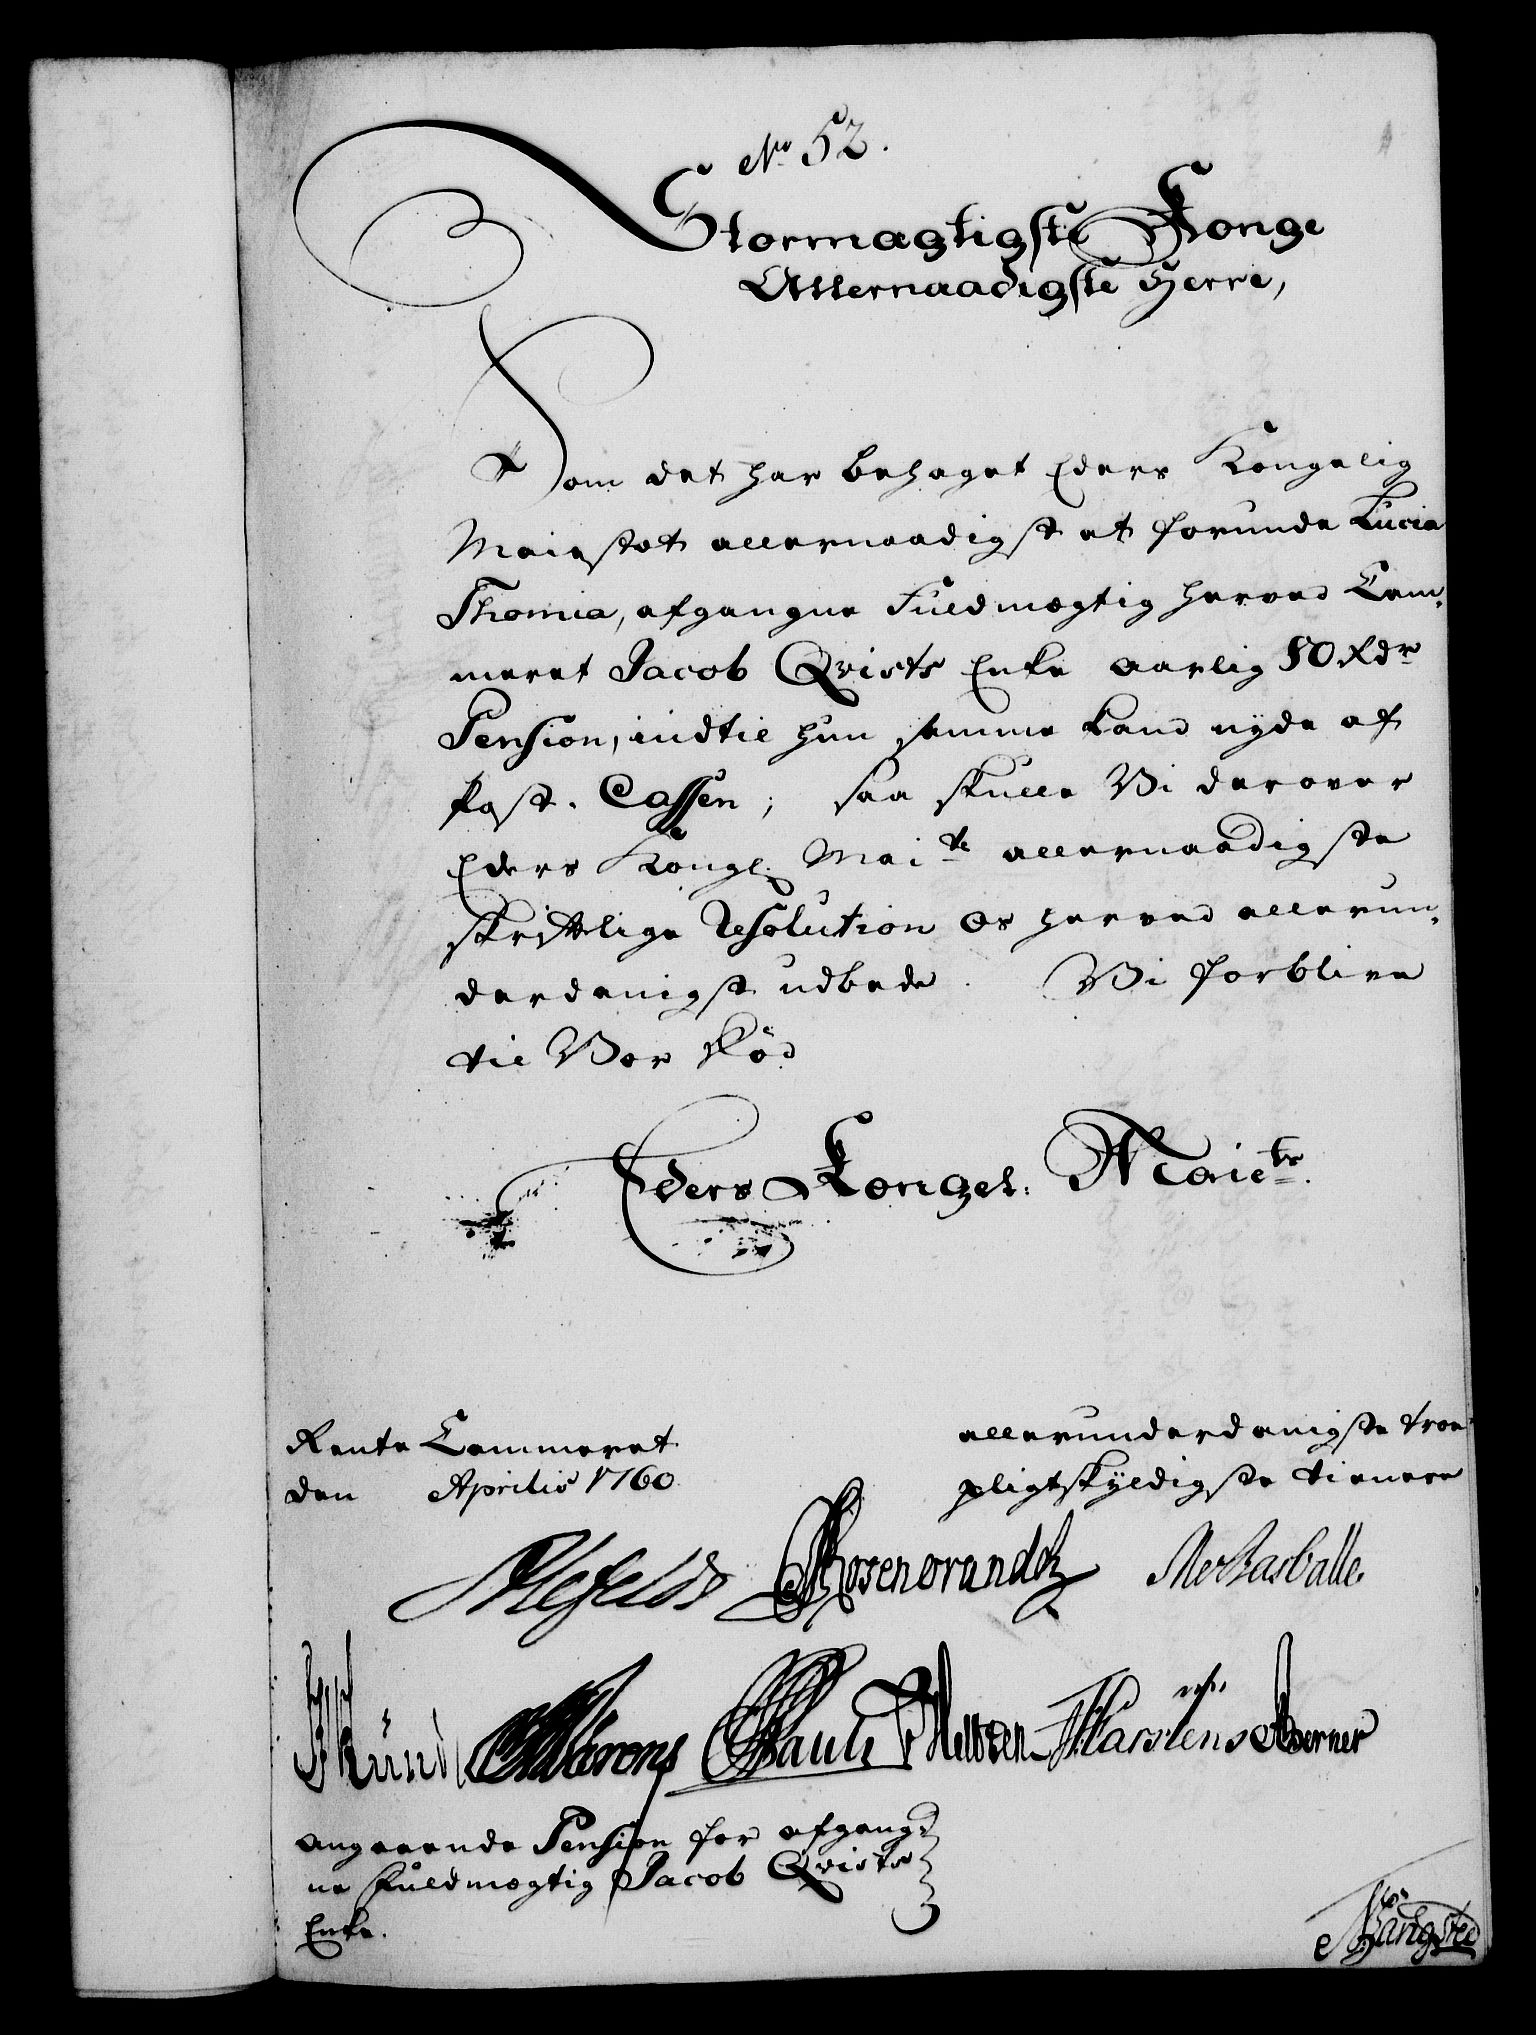 No 52.
Stormægtigste Konge
Allernaadigste Herre,
Som det har behaget Eders Kongelig
Maiestet allernaadigst at forunde Lucia
Thomia, afgangne Fuldmægtig herved Cam-
meret Jacob Qvists Enke aarlig 50 Rdr
Pension, indtil hun samme kand nyde af
Post-Cassen; saa skulle Vi derover
Eders Kongl. Maits allernaadigste
skriftlige Resolution os herved allerun-
derdanigst udbede. Vi forblive
til Vor Død
Eders Kongel: Maiets.
Rente Cammeret
den Aprilis 1760
allerunderdanigste troe
pligtskyldigste tienere
Ahlefeldt Rosencrandtz
Pauli Heltzen Karstens Berner
angaaende Pension for afgang-
ne Fuldmægtig Jacob Qvists
Enke.